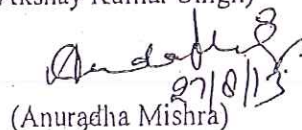 (Akshay Kumar Singh)
27/8/13
(Anuradha Mishra)